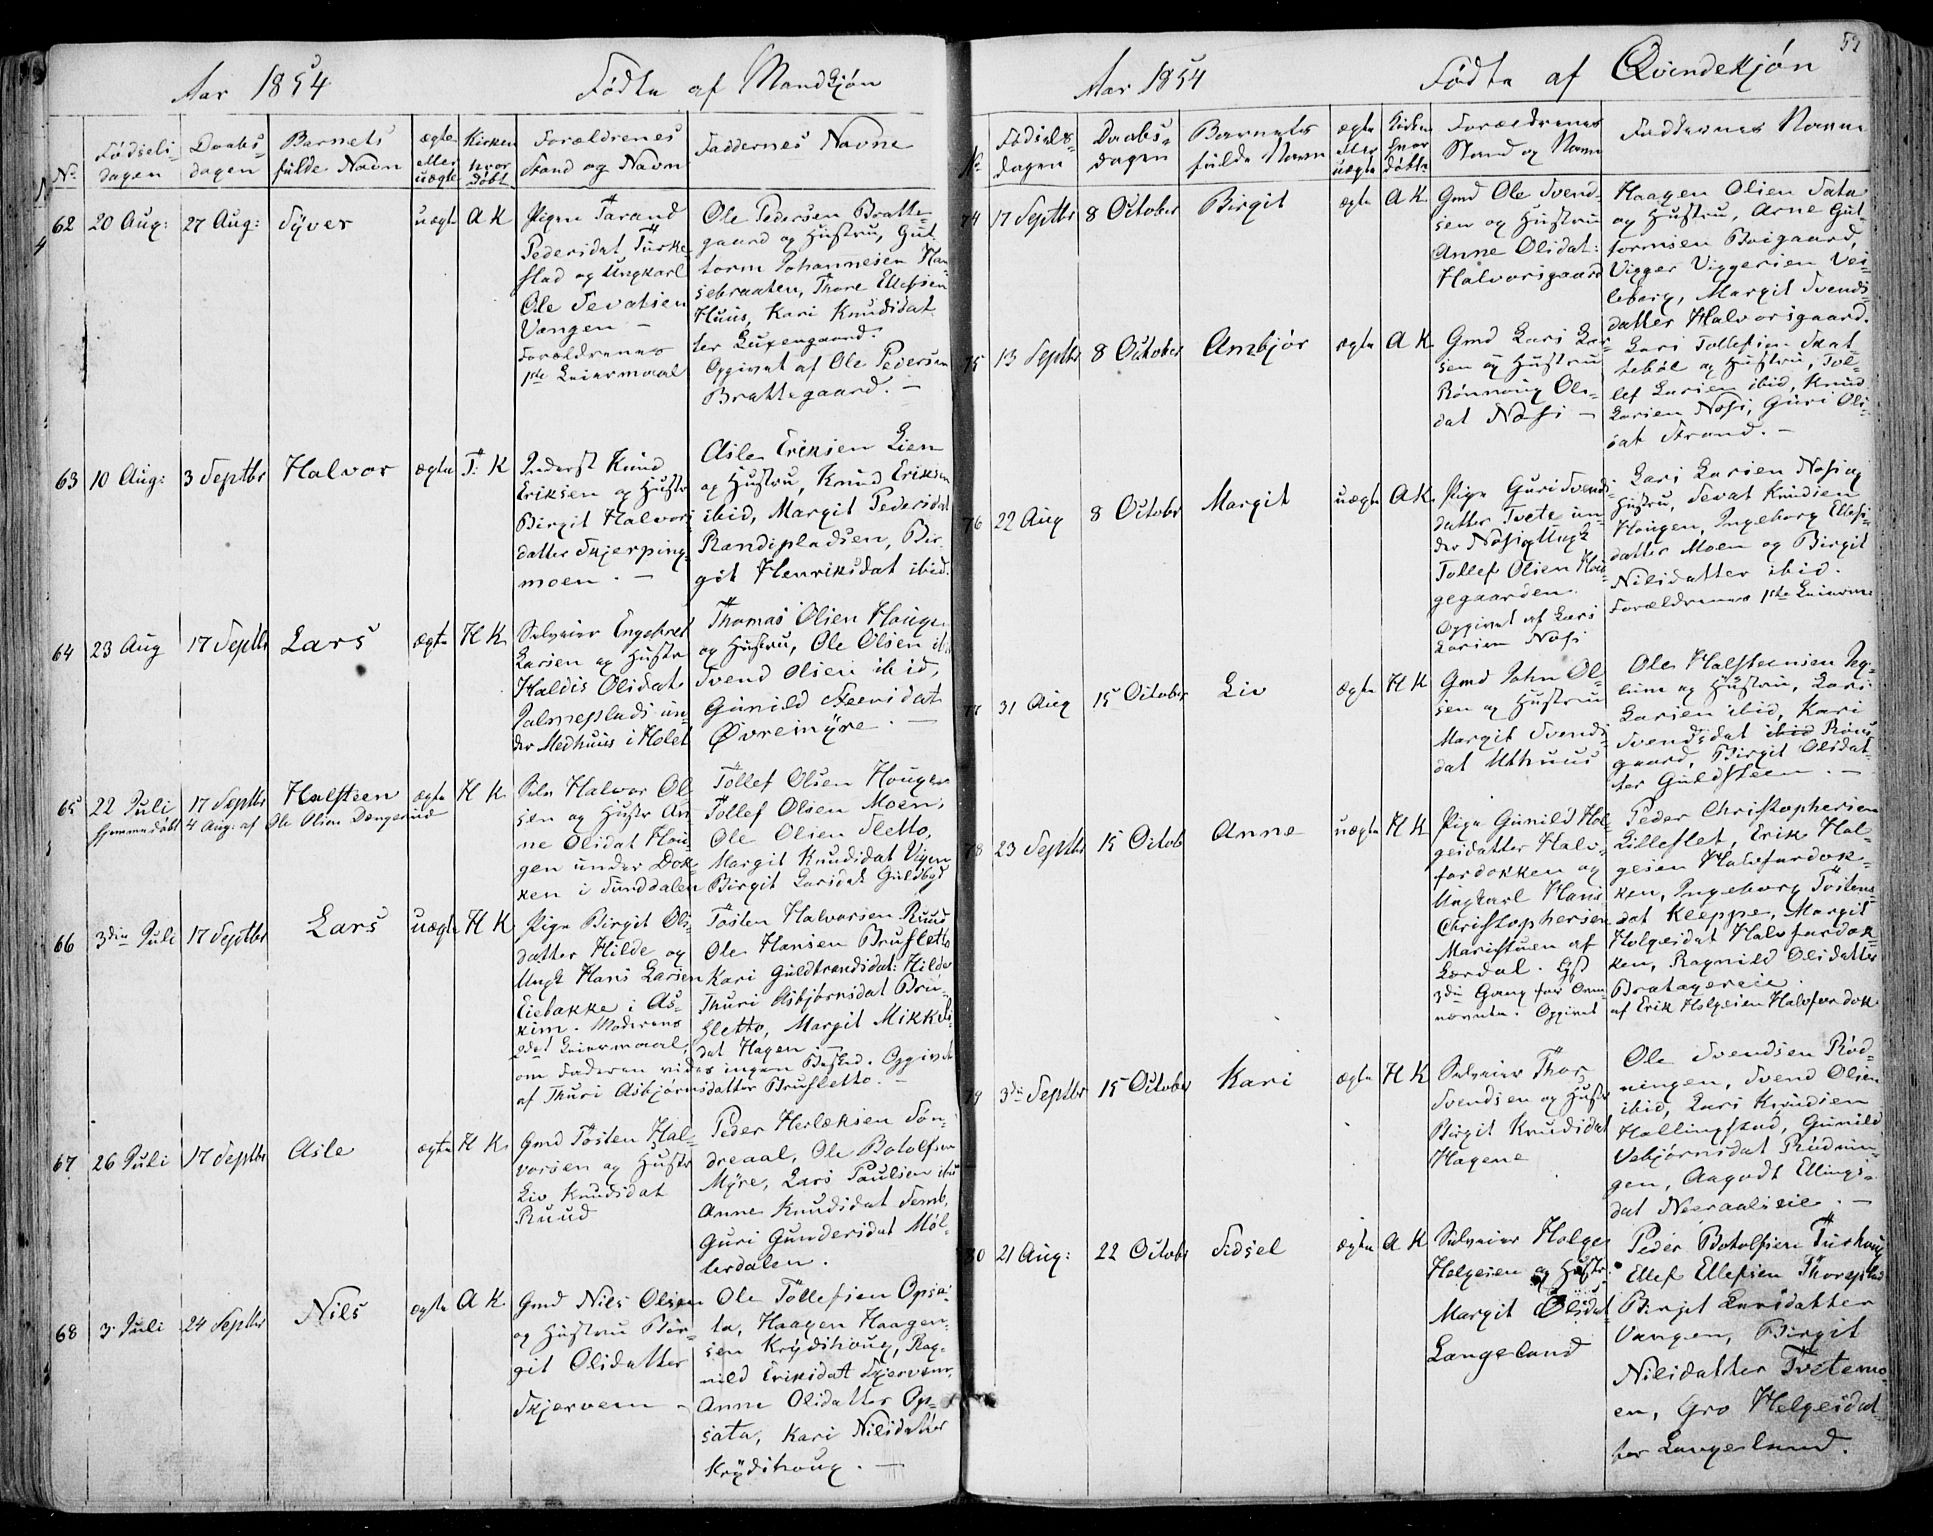 Aar 1854 Fødte af Mandkjøn
No
Fødsels-
dagen
Daabs-
dagen
Barnets
fulde Navn
ægte
eller
uægte
Kirken
hvor
døbt
Forældrenes
Stand og Navn
Faddernes Navne
62 20 Aug: 27 Aug: Syver uægte A K
Pigen Tarand
Pedersdat Turke-
stad og Ungkarl
Ole Sevatsen
Vangen –
Forældrenes
1ste Leiermaal
Ole Pedersen Bratte-
gaard og Hustru, Gut-
torm Johannesen Han-
sebraaten, Thore Ellefsen
Huus, Kari Knudsdat-
ter
Opgivet af Ole Pedersen
Brattegaard. –
63 10 Aug: 3 Septbr Halvor ægte T: K
Inderst Knud
Eriksen og Hustr
Birgit Halvors
datter Skjerping-
moen. –
Asle Eriksen Lien
og Hustru, Knud Eriksen
ibid, Margit Pedersdat
Randipladsen, Bir-
git Henriksdat ibid.
64 23 Aug 17 Septbr Lars ægte H K
Selveier Engebret
Larsen og Hustr
Haldis Olsdat
Palmesplads un-
der Medhuus i Holet
Thomas Olsen Hougen
og Hustru, Ole Olsen ib.
Svend Olsen ibid,
Gunild
Øvremyre. –
65 22 Juli 17 Septbr Halsteen ægte H K
hjemmedøbt 4 Aug: af Ole Olsen Dengerud
Selv Halvor Ol-
sen og Hustr An-
ne Olsdat Hou-
gen under Dok-
ken i Sunddalen
Tollef Olsen Hougen
Tollef Olsen Moen,
Ole Olsen Sletto,
Margit Knudsdat Vigen
Birgit Larsdat Guldbyd
66 3die Juli 17 Septbr Lars uægte H K
Pige Birgit Ols-
datter Hilde og
Ungk Hans Larsen
Eiebakke i As-
kim. Moderens
2det Leiermaal,
om Faderen vides ingen Besked. Opgivet
af Thuri Asbjørnsdatter Brusletto. –
Tosten Halvorsen Ruud
Ole Hansen Brusletto
Kari Guldbrandsdat: Hilde
Thuri Asbjørnsdat Bru-
sletto, Margit Mikkels-
dat Hagen –
67 26 Juli 17 Septbr Asle ægte H K
Gmd Tosten Hal-
vorsen og Hustr
Liv Knudsdat
Ruud
Peder Herlæksen Søn-
dreaal, Ole Botolfsen
Myre, Lars Paulsen ibid
Anne Knudsdat Semb,
Guri Gundersdat Møl-
lerdalen.
68 3 Juli 24 Septbr Nils ægte A K
Gmd Nils Olsen
og Hustru Bir-
git Olsdatter
Skjervem –
Ole Tollefsen Opsa-
ta, Haagen Haagen-
sen Krydshoug, Rag-
nild Eriksdat Skjervem,
Anne Olsdatter Op-
sata, Kari Nilsdatter
Krydshoug. –
53
Aar 1854 Fødte af Qvindekjøn
No
Fødsels-
dagen
Daabs-
dagen
Barnets
fulde Navn
ægte
eller
uægte
Kirken
hvor
døbt
Forældrenes
Stand og Navn
Faddernes Navne
74 17 Septbr 8 October Birgit ægte A K
Gmd Ole Svend-
sen og Hustru
Anne Olsdat:
Halvorsgaard
Haagen Olsen Sata
og Hustru, Arne Gut-
tormsen Boigaard,
Vigger Viggersen Vei-
leborg, Margit Svends-
datter Halvorsgaard.
75 13 Septbr 8 October Ambjør ægte A K
Gmd Lars Lar-
sen og Hustru
Rønnoug Ols-
dat Nøsi –
Lars Tollefsen Skat-
tebøl og Hustru, Tol-
lef Larsen ibid, Knud
Larsen Nøsi, Guri Ols-
dat Strand. –
76 22 Aug 8 October Margit uægte A K
Pige Guri Svends-
datter Tvete un-
der Nøsi og Ungk
Tollef Olsen Hou-
gegaarden.
Opgivet af Lars
Larsen Nøsi
Lars Larsen Nøsi og
Hustru, Sevat Knudsen
Hougen, Ingeborg Ellefs-
datter Moen og Birgit
Nilsdatter ibid.
Forældrenes 1ste Leierm
77 31 Aug 15 October Liv ægte H K
Gmd John Ol-
sen og Hustru
Margit Svends-
dat Uthuus
Ole Halsteensen
og Hustru, Lars
Larsen ibid, Kari
Svendsdat ibid
gaard, Birgit Olsdat-
ter Guldsteen. –
78 23 Septbr 15 Octob Anne uægte H K
Pige Gunild Hol-
gesdatter Halv-
fardokken og
Ungkarl Hans
Christophersen
Maristuen af
Lærdal. Gst
3die Gang for
Opgivet
Peder Christophersen
Lilleslet, Erik Hol-
gesen Halvfardok-
ken, Ingeborg Tostens-
dat Kleppe, Margit
Holgesdat Halvfardok-
ken, Ragnild Olsdatter
Bratageneie.
af Erik Holgesen Halvfardok
79 3die Septbr 15 October Kari ægte H K
Selveier Thor
Svendsen og Hustr
Birgit Knudsdat
Hagene
Ole Svendsen Rød-
ningen, Svend Olsen
ibid, Lars Knudsen
Hallingstad, Gunild
Vebjørnsdat Rødnin-
gen, Aagodt Ellings-
dat Noraalseie. –
80 21 Aug: 22 Octobr Sidsel ægte A K
Selveier Holge
Holgesen og Hustr:
Margit Olsdat
Langeland
Peder Botolfsen Turhoug
Ellef Ellefsen Thorsplad
Birgit Larsdatter
Vangen, Birgit
Nilsdatter Tvetemo-
en, Gro Helgesdat-
ter Langeland.